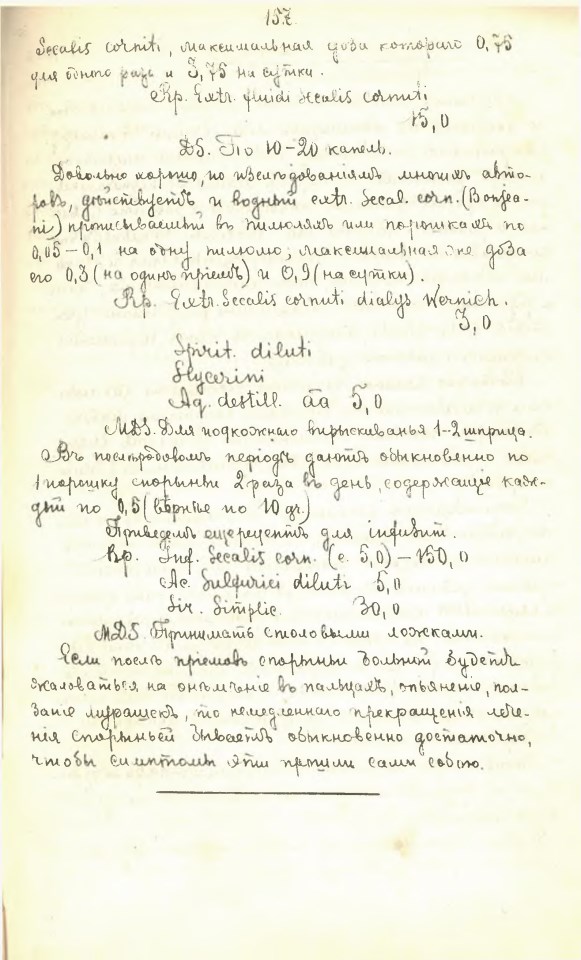 157.
Secalis cornuti, максимальная доза котораго 0,75
для одного раза и 3,75 на сутки.
Rp. Extr. fluidi secalis cornuti
15,0
DS. По 10-20 капель.
Довольно хорошо, по изслѣдованіямъ многихъ авто-
ровъ, дѣйствуетъ и водный extr. Secal. corn. (Bonjea-
ni) прописываемый въ пилюляхъ или порошкахъ по
0,05-0,1 на одну пилюлю; максимальная же доза
его 0,3 (на одинъ пріемъ) и 0,9 (на сутки).
Rp. Extr. Secalis cornuti dialys Wernich.
3,0
Spirit. diluti
Glycerini
Aq. destill. āā 5,0
MDS. Для подкожнаго впрыскиванья 1-2 шприца.
Въ послѣродовомъ періодѣ даютъ обыкновенно по
1 порошку спорыньи 2 раза въ день, содержащіе каж-
дый по 0,5 (вѣрнѣе по 10 gr.)
Приведемъ еще рецептъ для infus'и.
Rp. Inf. Secalis corn. (e. 5,0) - 150,0
Ac. Sulfurici diluti 5,0
Sir. Simplic. 30,0
MDS. Принимать столовыми ложками.
Если послѣ пріемовъ спорыньи больной будетъ
жаловаться на онѣмѣніе въ пальцахъ, опьяненіе, пол-
заніе мурашекъ, то немедленнаго прекращенія лече-
нія спорыньей бываетъ обыкновенно достаточно,
чтобы симптомы эти прошли сами собою.